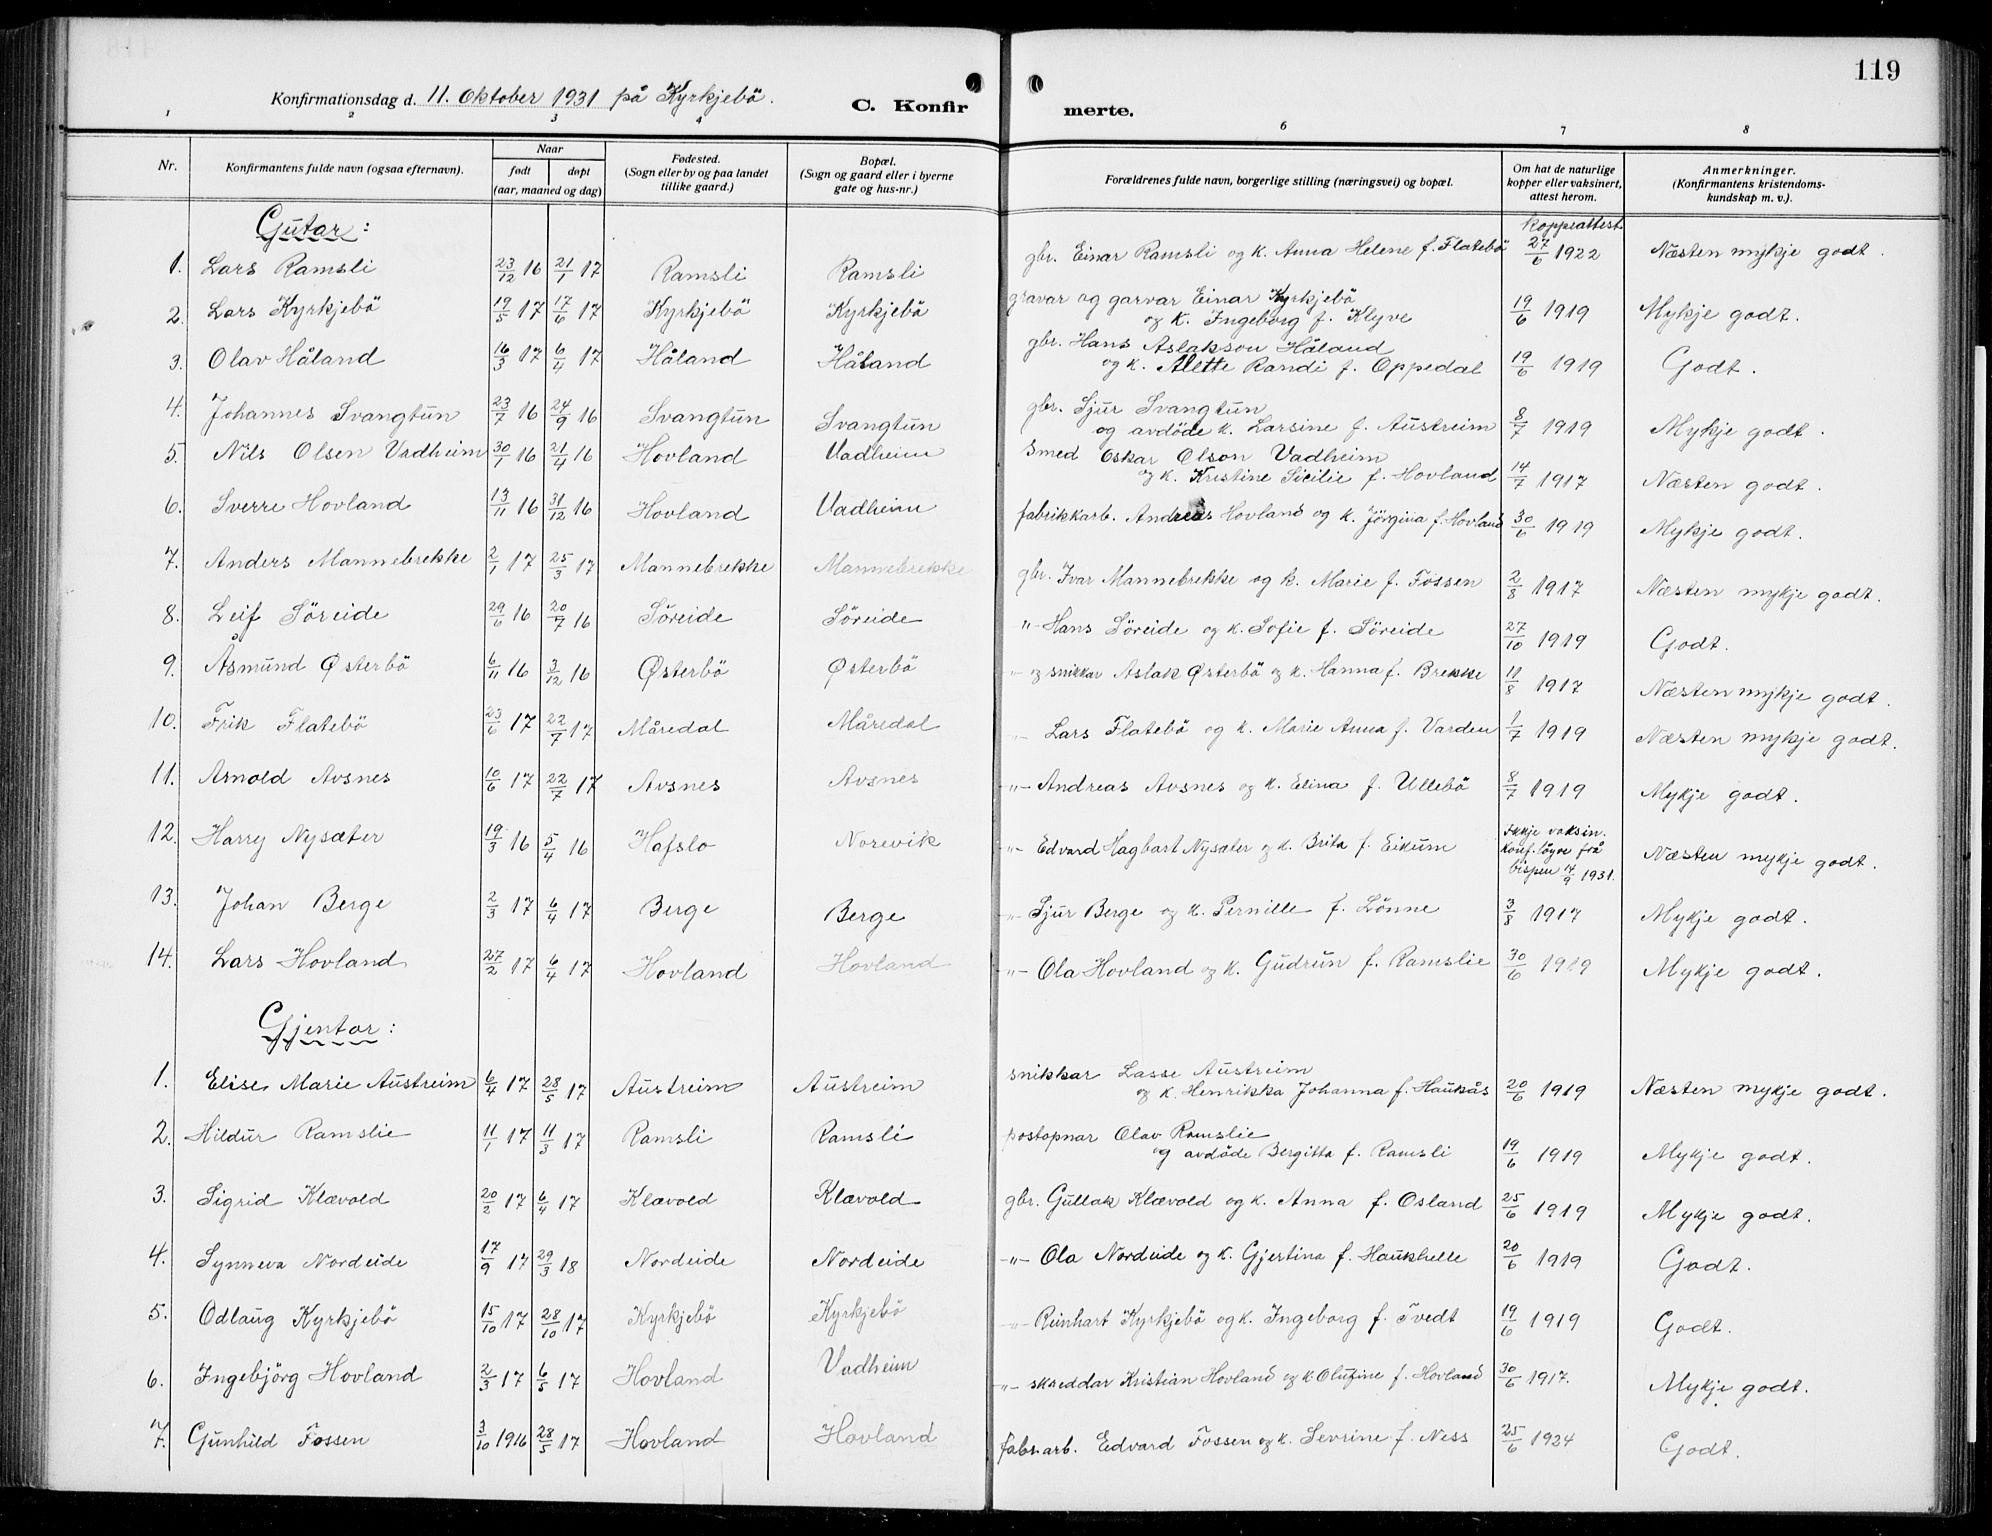 119
Konfirmationsdag d. 11. Oktober 1931 på Kyrkjebö. C. Konfir merte.
1 2 3 4 6 7 8
Nr. Konfirmantens fulde navn (ogsaa efternavn). Naar født døpt (aar, maaned og dag) Fødested. (Sogn eller by og paa landet tillike gaard.) Bopæl. (Sogn og gaard eller i byerne gate og hus-nr.) Forældrenes fulde navn, borgerlige stilling (næringsvei) og bopæl. Om hat de naturlige kopper eller vaksinert, attest herom. Anmerkninger. (Konfirmantens kristendoms-kundskap m. v.).
Gutar: Koppeattest
1. Lars Ramsli 23/12 16 21/1 17 Ramsli Ramsli gbr. Einar Ramsli og k. Anna Helene f. Flatebö 27/6 1922 Næsten mykje godt.
2. Lars Kyrkjebö 19/5 17 17/6 17 Kyrkjebö Kyrkjebö gravar og garvar Einar Kyrkjebö
og k. Ingeborg f. Klyve 19/6 1919 Mykje godt.
3. Olav Håland 16/3 17 6/4 17 Håland Håland gbr. Hans Aslakson Håland
og k. Alette Randi f. Oppedal 19/6 1919 Godt.
4. Johannes Svangtun 23/7 16 24/9 16 Svangtun Svangtun gbr. Sjur Svangtun
og avdöde k. Larsine f. Austreim 8/7 1919 Mykje godt.
5. Nils Olsen Vadheim 30/1 16 21/4 16 Hovland Vadheim Smed Oskar Olson Vadheim
og k. Kristine Sicilie f. Hovland 14/7 1917 Næsten godt.
6. Sverre Hovland 13/11 16 31/12 16 Hovland Vadheim fabrikkarb. Andreas Hovland og k. Jörgina f. Hovland 30/6 1919 Mykje godt.
7. Anders Mannebrekke 2/1 17 25/3 17 Mannebrekke Mannebrekke gbr. Ivar Mannebrekke og k. Marie f. Fossen 2/8 1917 Næsten mykje godt.
8. Leif Söreide 29/6 16 20/7 16 Söreide Söreide "- Hans Söreide og k. Sofie f. Söreide 27/10 1919 Godt.
9. Åsmund Østerbö 6/11 16 3/12 16 Østerbö Østerbö -"- og snikkar Aslak Østerbö og k. Hanna f. Brekke 11/8 1917 Næsten mykje godt.
10. Frik Flatebö 23/6 17 22/7 17 Måredal Måredal -"- Lars Flatebö og k. Marie Anna f. Varden 1/7 1919 Næsten mykje godt.
11. Arnold Avsnes 10/6 17 22/7 17 Avsnes Avsnes -"- Andreas Avsnes og k. Elina f. Ullebö 8/7 1919 Mykje godt.
12. Harry Nysæter 19/3 16 5/4 16 Hafslo Norevik -"- Edvard Hagbart Nysæter og k. Brita f. Eikum Ikkje vaksin. Konf. löyve frå bispen 14/9 1931. Næsten mykje godt.
13. Johan Berge 2/3 17 6/4 17 Berge Berge -"- Sjur Berge og k. Pernille f. Lönne 3/8 1917 Mykje godt.
14. Lars Hovland 27/2 17 6/4 17 Hovland Hovland -"- Ola Hovland og k. Gudrun f. Ramslie 30/6 1919 Mykje godt.
Gjentor:
1. Elise Marie Austreim 6/4 17 28/5 17 Austreim Austreim snikkar Lasse Austreim
og k. Henrikka Johanna f. Haukås 20/6 1919 Næsten mykje godt.
2. Hildur Ramslie 11/1 17 11/3 17 Ramsli Ramsli postopnar Olav Ramslie
og avdöde Bergitta f. Ramsli 19/6 1919 Mykje godt.
3. Sigrid Klævold 20/2 17 6/4 17 Klævold Klævold gbr. Gullak Klævold og k. Anna f. Osland 25/6 1919 Mykje godt.
4. Synneva Nordeide 17/9 17 29/3 18 Nordeide Nordeide -"- Ola Nordeide og k. Gjertina f. Haukhelle 20/6 1919 Godt.
5. Odlaug Kyrkjebö 15/10 17 28/10 17 Kyrkjebö Kyrkjebö -"- Reinhart Kyrkjebö og k. Ingeborg f. Tvedt 19/6 1919 Godt.
6. Ingebjörg Hovland 2/3 17 6/5 17 Hovland Vadheim -"- skreddar Kristian Hovland og k. Olufine f. Hovland 30/6 1917. Mykje godt.
7. Gunhild Fossen 3/10 1916 28/5 17 Hovland Hovland fabr.arb. Edvard Fossen og k. Sevrine f. Ness 25/6 1924 Godt.